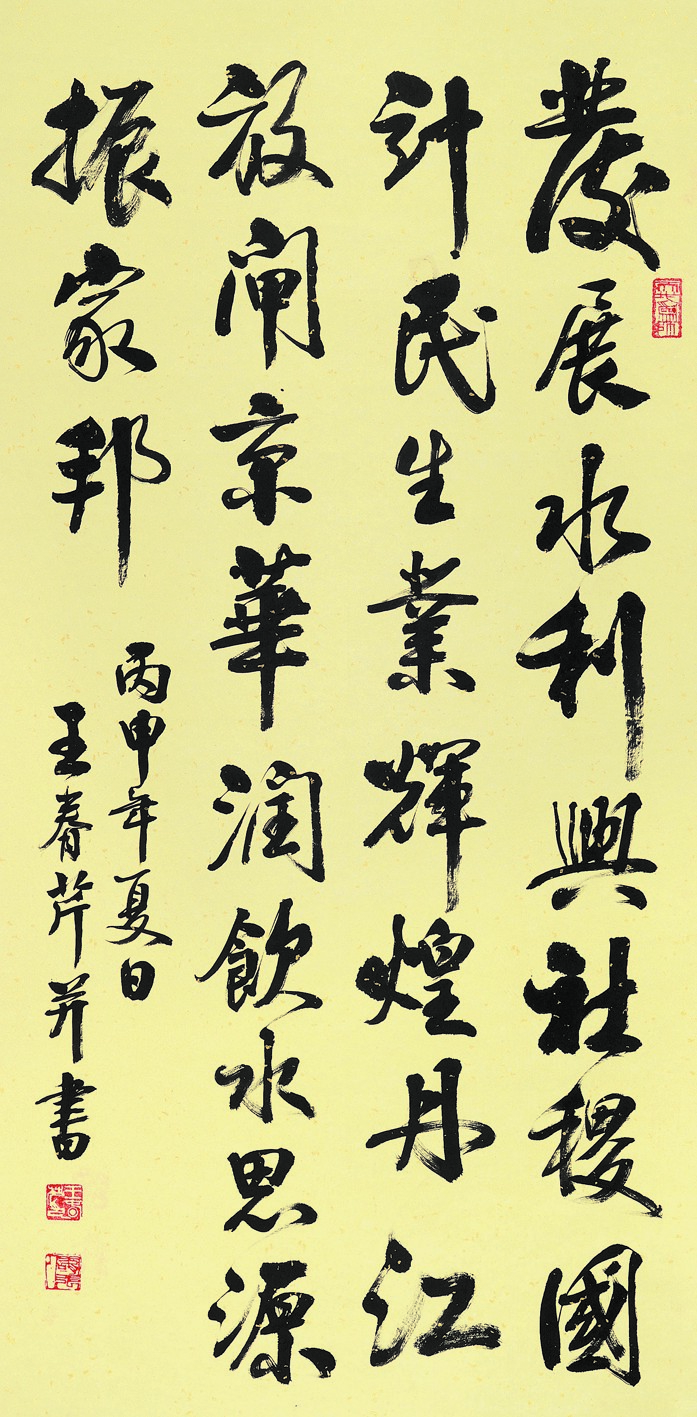 發展水利興社稷國
計民生業輝煌丹江
放閘京華潤飲水思源
振家邦
丙申年夏日
王春芹并書